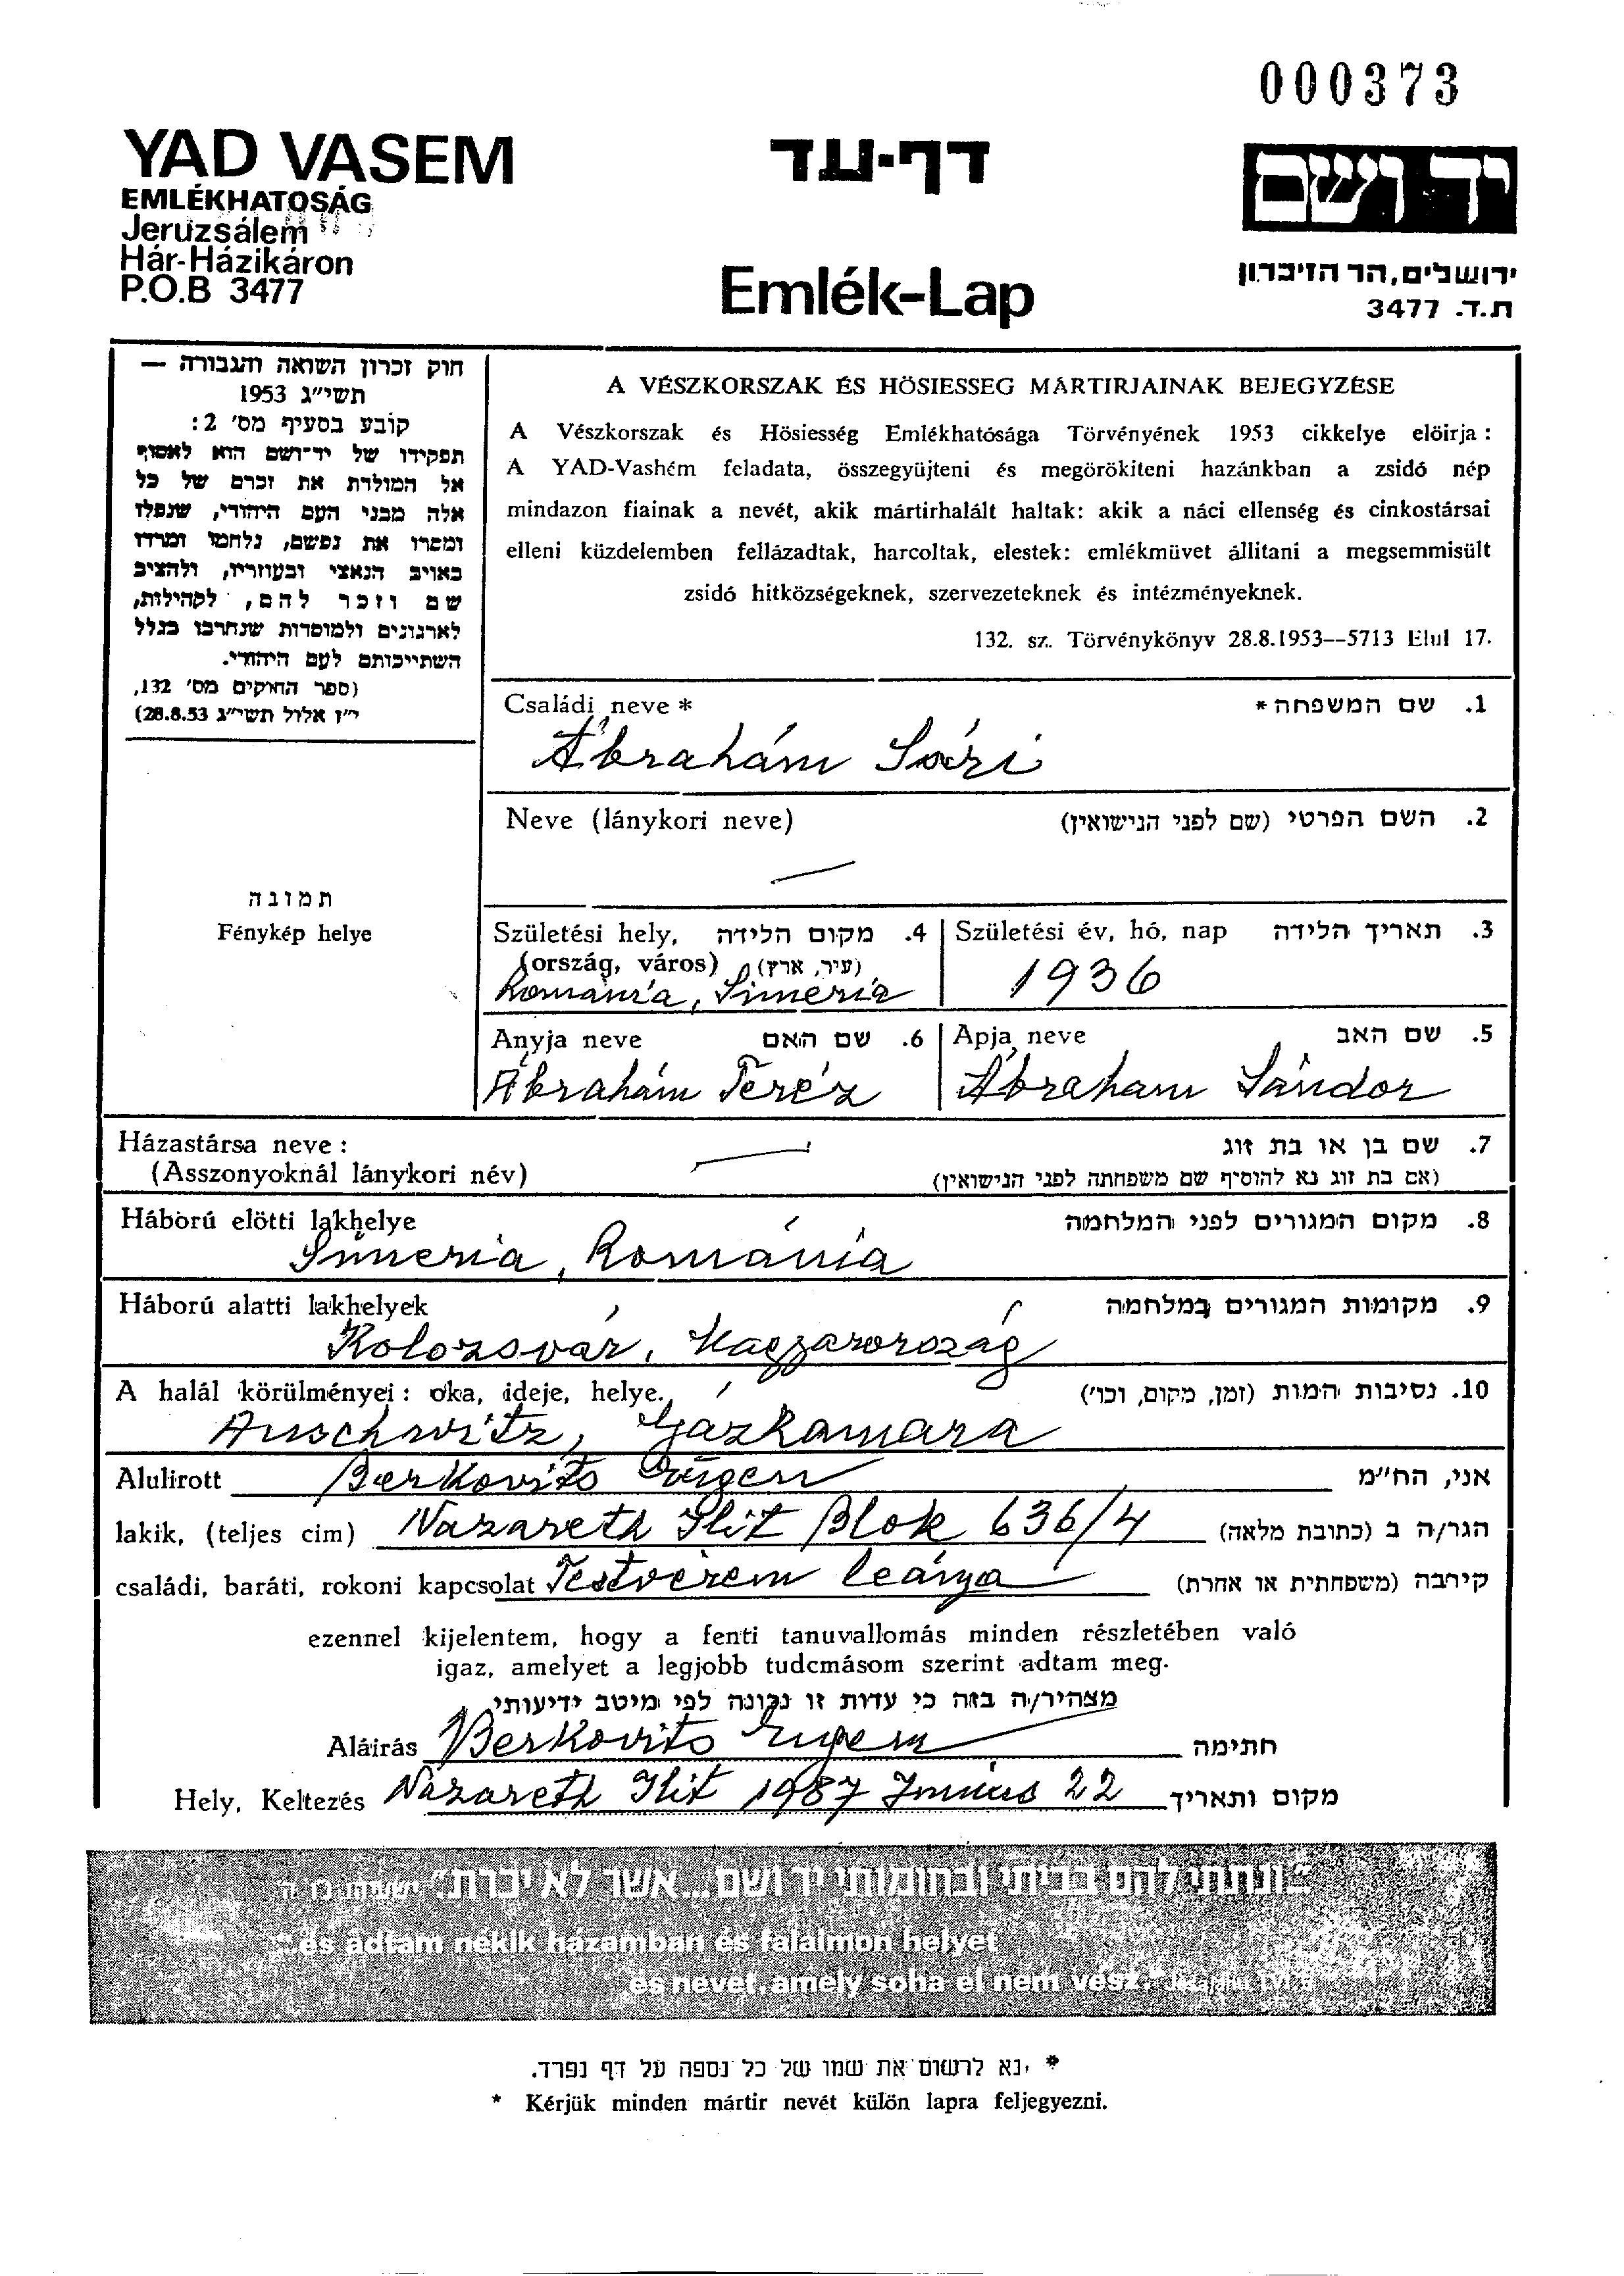 000373
YAD VASEM
EMLÉKHATOSÁG
Jeruzsálem
Hár-Házikáron
P.O.B 3477
דף-עד
Emlék-Lap
יד ושם
ירושלים, הר הזיכרון
ת.ד. 3477
חוק זכרון השואה והגבורה —
תשי״ג 1953
קובע בסעיף מס' 2:
תפקידו של יד־ושם הוא לאסוף
אל המולדת את זכרם של כל
אלה מבני העם היהודי, שנפלו
ומסרו את נפשם, נלחמו ומרדו
באויב הנאצי ובעוזריו, ולהציב
שם וזכר להם, לקהילות,
לארגונים ולמוסדות שנחרבו בגלל
השתייכותם לעם היהודי.
(ספר החוקים מס' 132,
י״ז אלול תשי״ג 28.8.53)
תמונה
Fénykép helye
A VÉSZKORSZAK ÉS HÖSIESSEG MÁRTIRJAINAK BEJEGYZÉSE
A Vészkorszak és Hösiesség Emlékhatósága Törvényének 1953 cikkelye elöirja :
A YAD-Vashém feladata, összegyüjteni és megörökiteni hazánkban a zsidó nép
mindazon fiainak a nevét, akik mártirhalált haltak: akik a náci ellenség és cinkostársai
elleni küzdelemben fellázadtak, harcoltak, elestek: emlékmüvet állitani a megsemmisült
zsidó hitközségeknek, szervezeteknek és intézményeknek.
132. sz. Törvénykönyv 28.8.1953--5713 Elul 17.
Családi neve * 1. שם המשפחה *
Ábrahám Sári
Neve (lánykori neve) 2. השם הפרטי (שם לפני הנישואין)
—
Születési hely, 4. מקום הלידה
(ország, város) (עיר, ארץ)
Románia, Simeria
Születési év, hó, nap 3. תאריך הלידה
1936
Anyja neve 6. שם האם
Ábrahám Teréz
Apja neve 5. שם האב
Ábraham Sándor
Házastársa neve : 7. שם בן או בת זוג
(Asszonyoknál lánykori név) — (אם בת זוג נא להוסיף שם משפחתה לפני הנישואין)
Háború elötti lakhelye 8. מקום המגורים לפני המלחמה
Simeria, Románia
Háború alatti lakhelyek 9. מקומות המגורים במלחמה
Kolozsvár, Magyarország
A halál körülményei : oka, ideje, helye. 10. נסיבות המות (זמן, מקום, וכו')
Auschwitz, Gázkamara
Alulirott Berkovits Eugen אני, הח״מ
lakik, (teljes cim) Nazareth Ilit Blok 636/4 הגר/ה ב (כתובת מלאה)
családi, baráti, rokoni kapcsolat Testvérem leánya קירבה (משפחתית או אחרת)
ezennel kijelentem, hogy a fenti tanuvallomás minden részletében való
igaz, amelyet a legjobb tudcmásom szerint adtam meg.
מצהיר/ה בזה כי עדות זו נכונה לפי מיטב ידיעותי.
Aláirás Berkovits Eugen חתימה
Hely, Keltezés Nazareth Ilit 1987 Junius 22 מקום ותאריך
"ונתתי להם בביתי ובחומותי יד ושם...אשר לא יכרת" ישעיהו נו ה
"..és adtam nékik házamban és falaimon helyet
és nevet, amely soha el nem vész."
* נא לרשום את שמו של כל נספה על דף נפרד.
* Kérjük minden mártir nevét külön lapra feljegyezni.